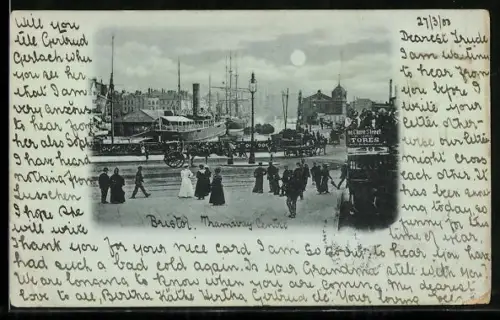 27/3/00
Will you
tell Gertrud
Gerlach when
you see her
that I am
very anxious
to hear from
her als
I have heard
nothing from
Lieschen
I hope she
will write
Dearest Trude
I am waiting
to hear from
you before I
write your
letter other-
wise our letters
might cross
each other. It
has been snow
ing today so
funny for the
time of year.
TORES
Bristol. Tramway Centre
Thank you for your nice card I am so sorry to hear you have
had such a bad cold again. Is your Grandma still with you
We are longing to know when you are coming. My dearest
love to all, Bertha Käthe Hertha Gertrud etc. Your loving